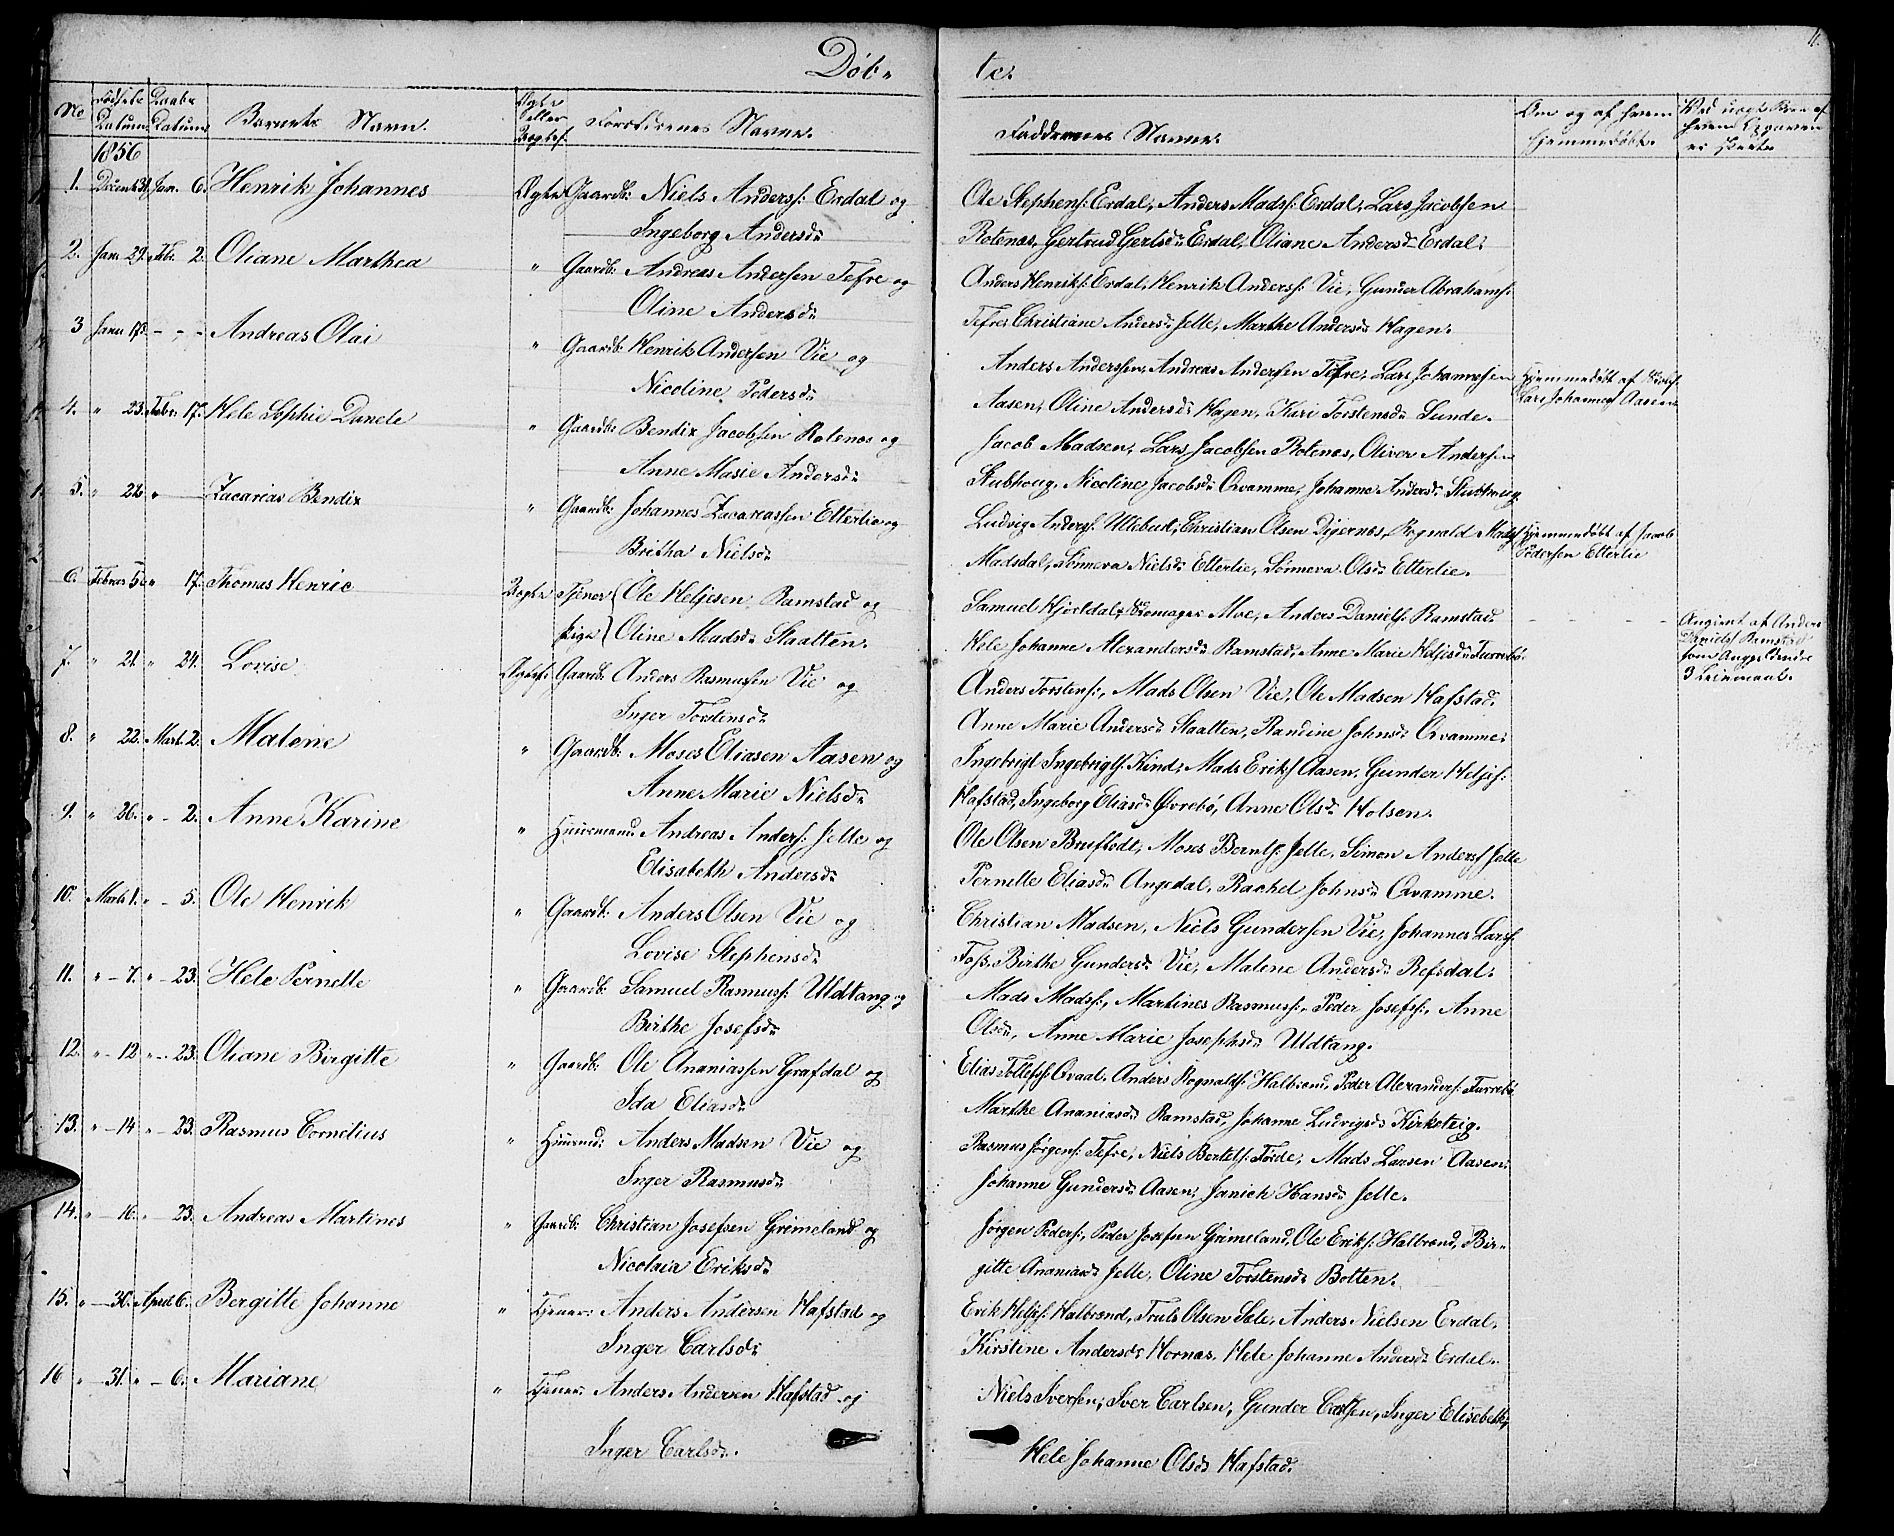 Døb-
te.
No
Fødsels Datum.
Daabs Datum.
Barnets Navn.
Ægte eller Uægtef.
Forældrenes Navne.
Faddernes Navne.
Om og af hvem hjemmedøbt.
Ved uægte Børn af hvem Opgaven er skeet.
1856
1. Decemb. 31. Jan. 6. Henrik Johannes Ægte Gaardb: Niels Anders: Erdal og
Ingeborg Andersd:
Ole Stephens: Erdal, Anders Mads: Erdal, Lars Jacobsen
Rotenæs, Gertrud Gertsd: Erdal, Oliane Andersd: Erdal.
2. Jan. 29. Feb. 2. Oliane Marthea " Gaardb: Andreas Andersen Tefre og
Oline Andersd:
Anders Henriks: Erdal, Henrik Anders: Vie, Gunder Abrahams:
Tefre, Christiane Andersd: Jelle, Marthe Andersd: Hagen.
3 Janu 17. - - - Andreas Olai " Gaardb: Henrik Andersen Vie og
Nicoline Pedersd:
Anders Anderssen, Andreas Andersen Tefre, Lars Johannesen
Aasen, Oline Andersd: Hagen, Kari Torstensd: Sunde.
Hjemmedøbt af
Lars Johannes: Aasen
4. " 23. Febr. 17. Hele Sophie Danele " Gaardb: Bendix Jacobsen Rotenæs og
Anne Marie Andersd:
Jacob Madsen, Lars Jacobsen Rotenæs, Oliver Andersen
Stubhoug, Nicoline Jacobsd: Qvamme, Johanne Andersd: Stubhoug.
5. " 22 " Zacarias Bendix " Gaardb: Johannes Zacariassen Etterlie og
Britha Nielsd:
Ludvig Anders: Ulebust, Christian Olsen Digernes, Rognald Mads:
Madsdal, Sønneva Nielsd: Etterlie, Sønneva Olsd: Etterlie.
Hjemmedøbt af Jacob
Pedersen Etterlie
6. Februar 5. " 17. Thomas Henric Uægte Tjener Ole Heljesen Ramstad og
Pige Oline Madsd: Staatten.
Samuel Hjortdal, Skomager Moe, Anders Daniels: Ramstad
Hele Johanne Alexandersd: Ramstad, Anne Marie Heljesd: Furrebø.
Angivet af Anders
Daniels: Ramstad
som Angjeldendes
3 Leiermaal.
7. " 21. " 24. Lovise Ægtef: Gaardb: Anders Rasmussen Vie og
Inger Torstensd:
Anders Torstens:, Mads Olsen Vie, Ole Madsen Hafstad.
Anne Marie Andersd: Staatten, Randine Johnsd: Qvamme.
8. " 22. Mart. 2. Malene " Gaardb: Moses Eliasen Aasen og
Anne Marie Nielsd:
Ingebrigt Ingebrigts: Kind, Mads Eriks: Aasen, Gunder Heljes:
Hafstad, Ingeborg Eliasd: Øvrebø, Anne Olsd: Holsen.
9. " 26. " - 2. Anne Karine " Huusmand Andreas Anders: Jelle og
Elisabeth Andersd:
Ole Olsen Bruflodt, Moses Bernts: Jelle, Simon Anders: Jelle
Pernelle Eliasd: Angedal, Rachel Johnsd: Qvamme.
10. Marts 1. " - 5. Ole Henrik " Gaardb: Anders Olsen Vie og
Lovise Stephensd:
Christian Madsen, Niels Gundersen Vie, Johannes Lars:
Foss, Birthe Gundersd: Vie, Malene Andersd: Refsdal.
11. " - 7. " - 23. Hele Pernelle " Gaardb: Samuel Rasmus: Uldtang og
Birthe Josefsd:
Mads Mads:, Martines Rasmus:, Peder Josefs:, Anne
Olsd:, Anne Marie Josephsd: Uldtang.
12. " - 12 " - 23. Oliane Birgitte " Gaardb: Ole Ananiassen Grafdal og
Ida Eliasd:
Elias Tollefs: Qvaal, Anders Rognalds: Halbrend, Peder Alexanders: Furrebø
Marthe Ananiasd: Ramstad, Johanne Ludvigsd: Kirketeig.
13. " - 14 " - 23. Rasmus Cornelius " Huusmd: Anders Madsen Vie og
Inger Rasmusd:
Rasmus Jørgens: Tefre, Niels Bertels: Førde, Mads Larsen Aasen,
Johanne Gundersd: Aasen, Janich Hansd: Jelle.
14. " - 16. " - 23. Andreas Martines " Gaardb: Christian Josefsen Grimeland og
Nicolaia Eriksd:
Jørgen Peders:, Peder Josefsen Grimeland, Ole Eriks: Halbrend, Bir-
gitte Ananiasd: Jelle, Oline Torstensd: Botten.
15. " - 31. April 6. Bergitte Johanne " Tjener: Anders Andersen Hafstad og
Inger Carlsd:
Erik Heljes: Halbrend, Truls Olsen Sæle, Anders Nielsen Erdal,
Kirstine Andersd: Hornæs, Hele Johanne Andersd: Erdal.
16 " - 31. " - 6. Mariane " Tjener: Anders Andersen Hafstad og
Inger Carlsd:
Niels Iversen, Iver Carlsen, Gunder Carlsen, Inger Elisebeth,
Hele Johanne Olsd: Hafstad.